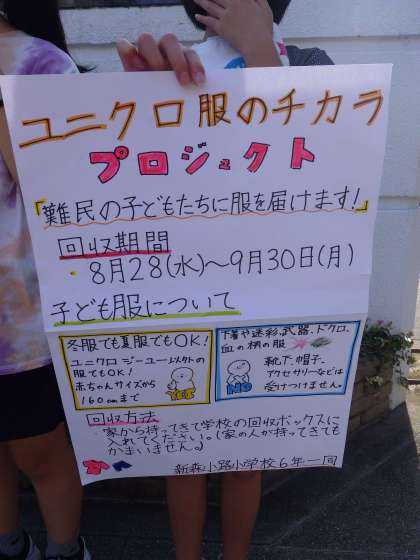 ユニクロ服のチカラ
プロジェクト
「難民の子どもたちに服を届けます!」
回収期間
・8月28(水)~9月30日(月)
子ども服について
冬服でも夏服でもOK!
ユニクロ ジーユー以外の
服でもOK!
赤ちゃんサイズから
160cmまで
YES
下着や迷彩、武器、ドクロ、
血の柄の服
靴下、帽子、
アクセサリーなどは
受けつけません。
NO
回収方法
・家から持ってきて学校の回収ボックスに
入れてください。(家の人が持ってきても
かまいません。)
新森小路小学校6年一同